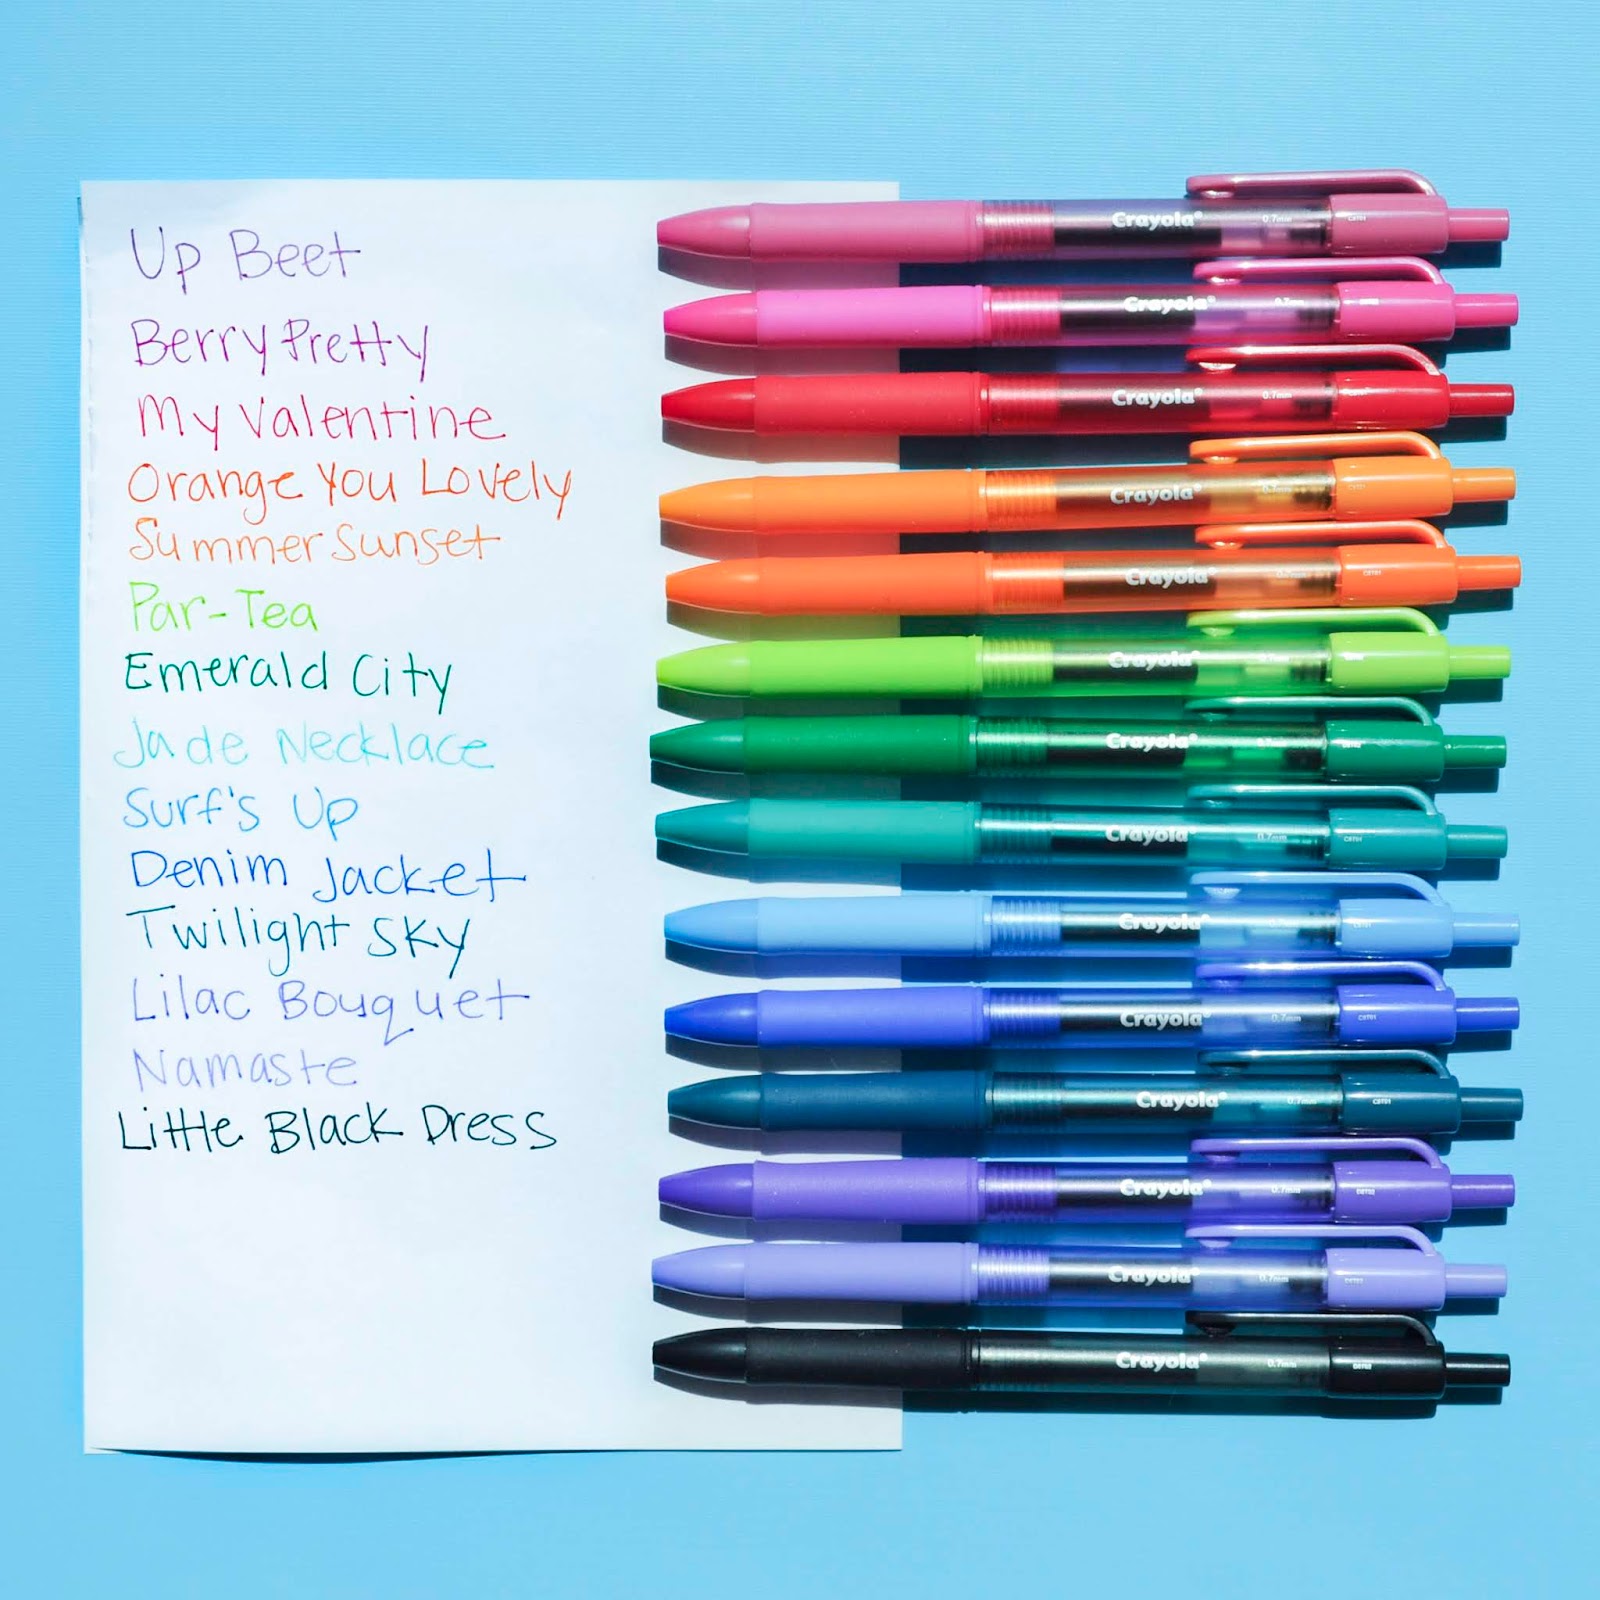 Up Beet
Berry Pretty
My Valentine
Orange You Lovely
Summer Sunset
Par-Tea
Emerald City
Jade Necklace
Surf's Up
Denim Jacket
Twilight Sky
Lilac Bouquet
Namaste
Little Black Dress
Crayola 0.7mm
Crayola 0.7mm
Crayola 0.7mm
Crayola 0.7mm
Crayola 0.7mm
Crayola 0.7mm
Crayola 0.7mm
Crayola 0.7mm
Crayola 0.7mm
Crayola 0.7mm
Crayola 0.7mm
Crayola 0.7mm
Crayola 0.7mm
Crayola 0.7mm